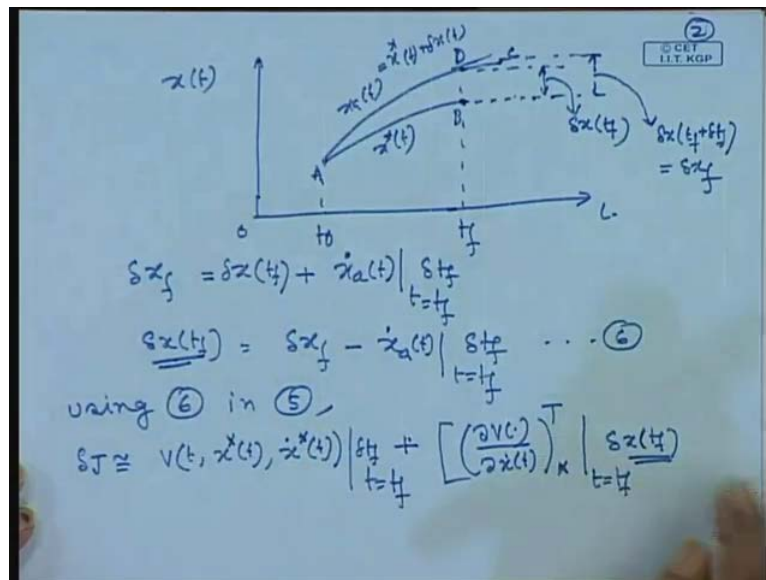 ②
© CET
I.I.T. KGP
x(t)
xₐ(t) = x*(t)+δx(t)
D
C
B
x*(t)
A
δx(t_f)
δx(t_f+δt_f)
= δx_f
0
t0
t_f
t.
δx_f = δx(t_f) + ẋₐ(t)|_{t=t_f} δt_f
δx(t_f) = δx_f − ẋₐ(t)|_{t=t_f} δt_f ... ⑥
using ⑥ in ⑤,
δJ ≅ V(t, x*(t), ẋ*(t))|_{t=t_f} δt_f + [(∂V(.)/∂ẋ(t))_*^T|_{t=t_f} δx(t_f)